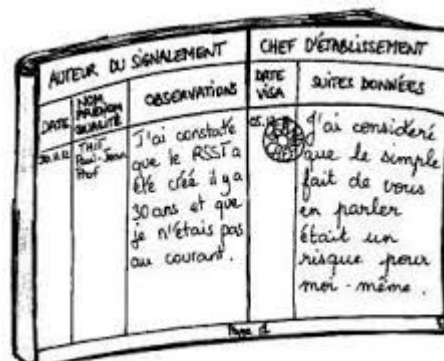 AUTEUR DU SIGNALEMENT
CHEF D'ÉTABLISSEMENT
DATE
NOM
PRÉNOM
QUALITÉ
OBSERVATIONS
DATE
VISA
SUITES DONNÉES
THIF
Paul-Jean
Prof
J'ai constaté
que le RSST a
été créé il y a
30 ans et que
je n'étais pas
au courant.
J'ai considéré
que le simple
fait de vous
en parler
était un
risque pour
moi-même.
Page 1